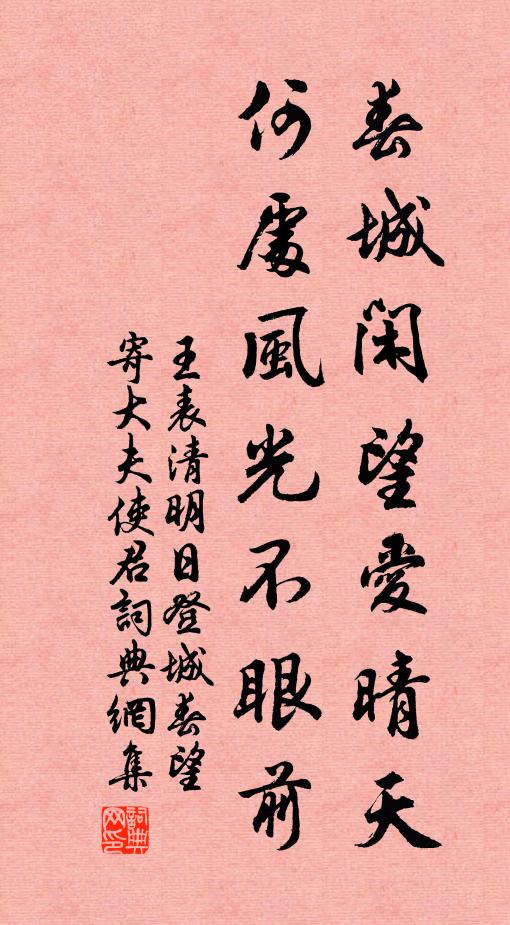 春城閑望愛晴天
何處風光不眼前
王表清明日登城春望
寄大夫使君詞典網集
詞典网印